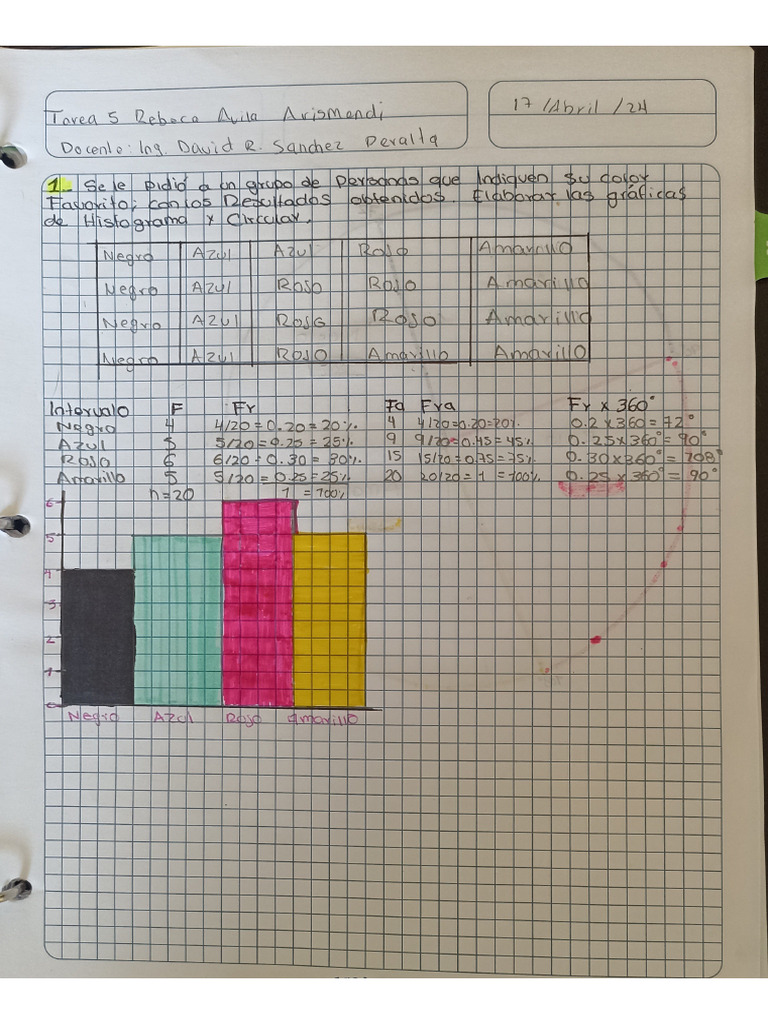 Tarea 5 Rebeca Avila Arismendi
17 /Abril /24
Docente: Ing. David R. Sanchez Peralta
1. Se le pidió a un grupo de Personas que Indiquen su color
Favorito; con los Resultados obtenidos. Elaborar las gráficas
de Histograma y Circular.
Negro Azul Azul Rojo Amarillo
Negro Azul Rojo Rojo Amarillo
Negro Azul Rojo Rojo Amarillo
Negro Azul Rojo Amarillo Amarillo
Intervalo F Fr Fa Fra Fr x 360°
Negro 4 4/20 = 0.20 = 20% 4 4/20=0.20=20% 0.2 x 360 = 72°
Azul 5 5/20 = 0.25 = 25% 9 9/20=0.45=45% 0.25x360°= 90°
Rojo 6 6/20 = 0.30 = 30% 15 15/20=0.75=75% 0.30x360°= 108°
Amarillo 5 5/20 = 0.25 = 25% 20 20/20= 1 = 100% 0.25 x 360° = 90°
n=20 1 = 100%
6
5
4
3
2
1
0
Negro Azul Rojo Amarillo